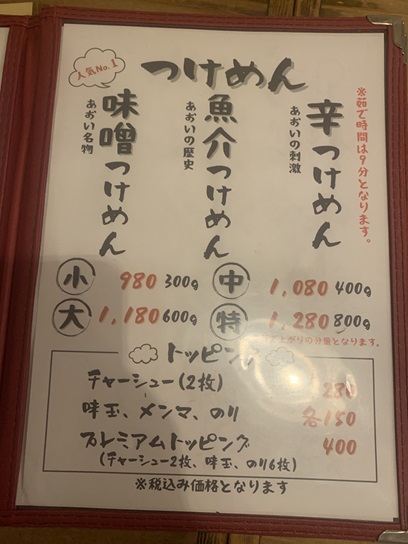 つけめん
※茹で時間は9分となります。
辛つけめん
あおいの刺激
魚介つけめん
あおいの歴史
人気No.1
味噌つけめん
あおい名物
小 980 300g
中 1,080 400g
大 1,180 600g
特 1,280 800g
上がりの分量となります。
トッピング
チャーシュー(2枚) 280
味玉、メンマ、のり 各150
プレミアムトッピング 400
(チャーシュー2枚、味玉、のり6枚)
※税込み価格となります